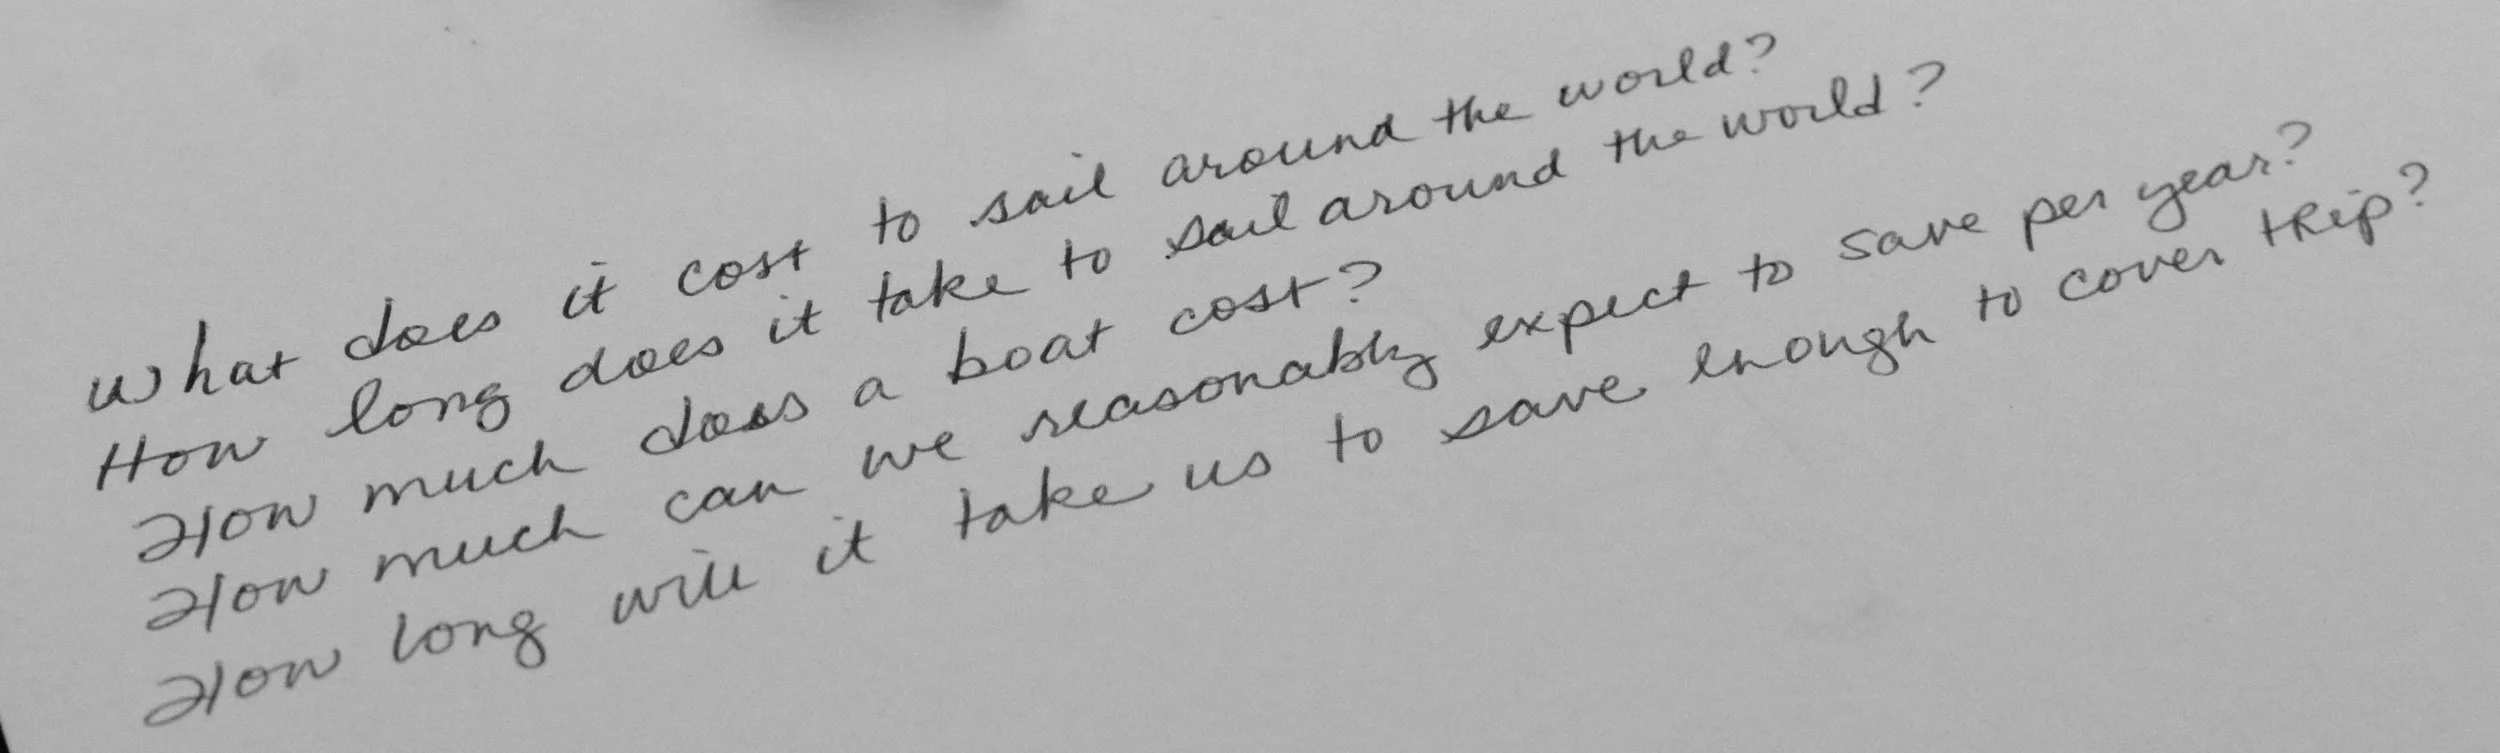 What does it cost to sail around the world?
How long does it take to sail around the world?
How much does a boat cost?
How much can we reasonably expect to save per year?
How long will it take us to save enough to cover trip?